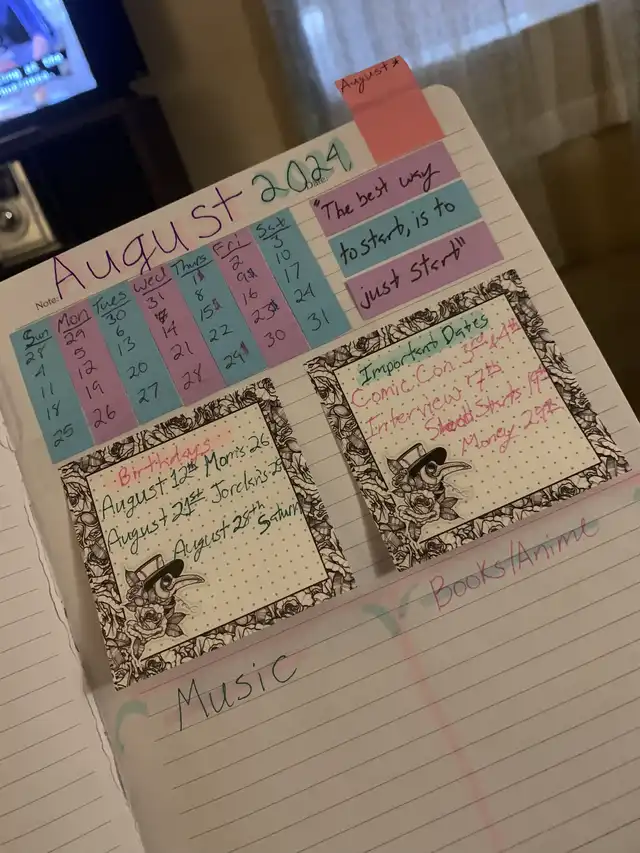 August*
August 2024
Note:
Date:
"The best way
to start, is to
just start"
Sun Mon Tues Wed Thurs Fri Sat
28 29 30 31 1 2 3
4 5 6 7 8 9 10
11 12 13 14 15 16 17
18 19 20 21 22 23 24
25 26 27 28 29 30 31
Important Dates
Comic Con: 3rd & 4th
Interview: 7th
Starts: 19th
Money: 29th
Birthdays:
August 12th Morris 26
August 21st
August 28th Saturn
Music
Books/Anime